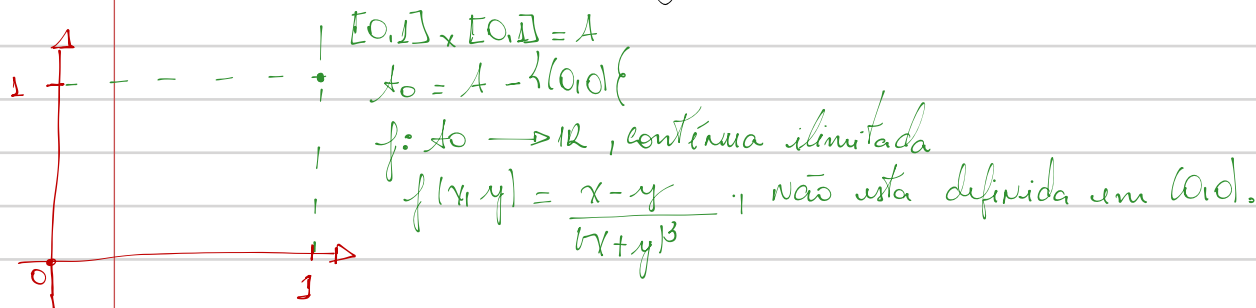 [0,1] x [0,1] = A
1
A0 = A - {(0,0)}
f: A0 → IR, contínua ilimitada
f(x,y) = x-y / (x+y)^3 , não esta definida em (0,0).
0
1